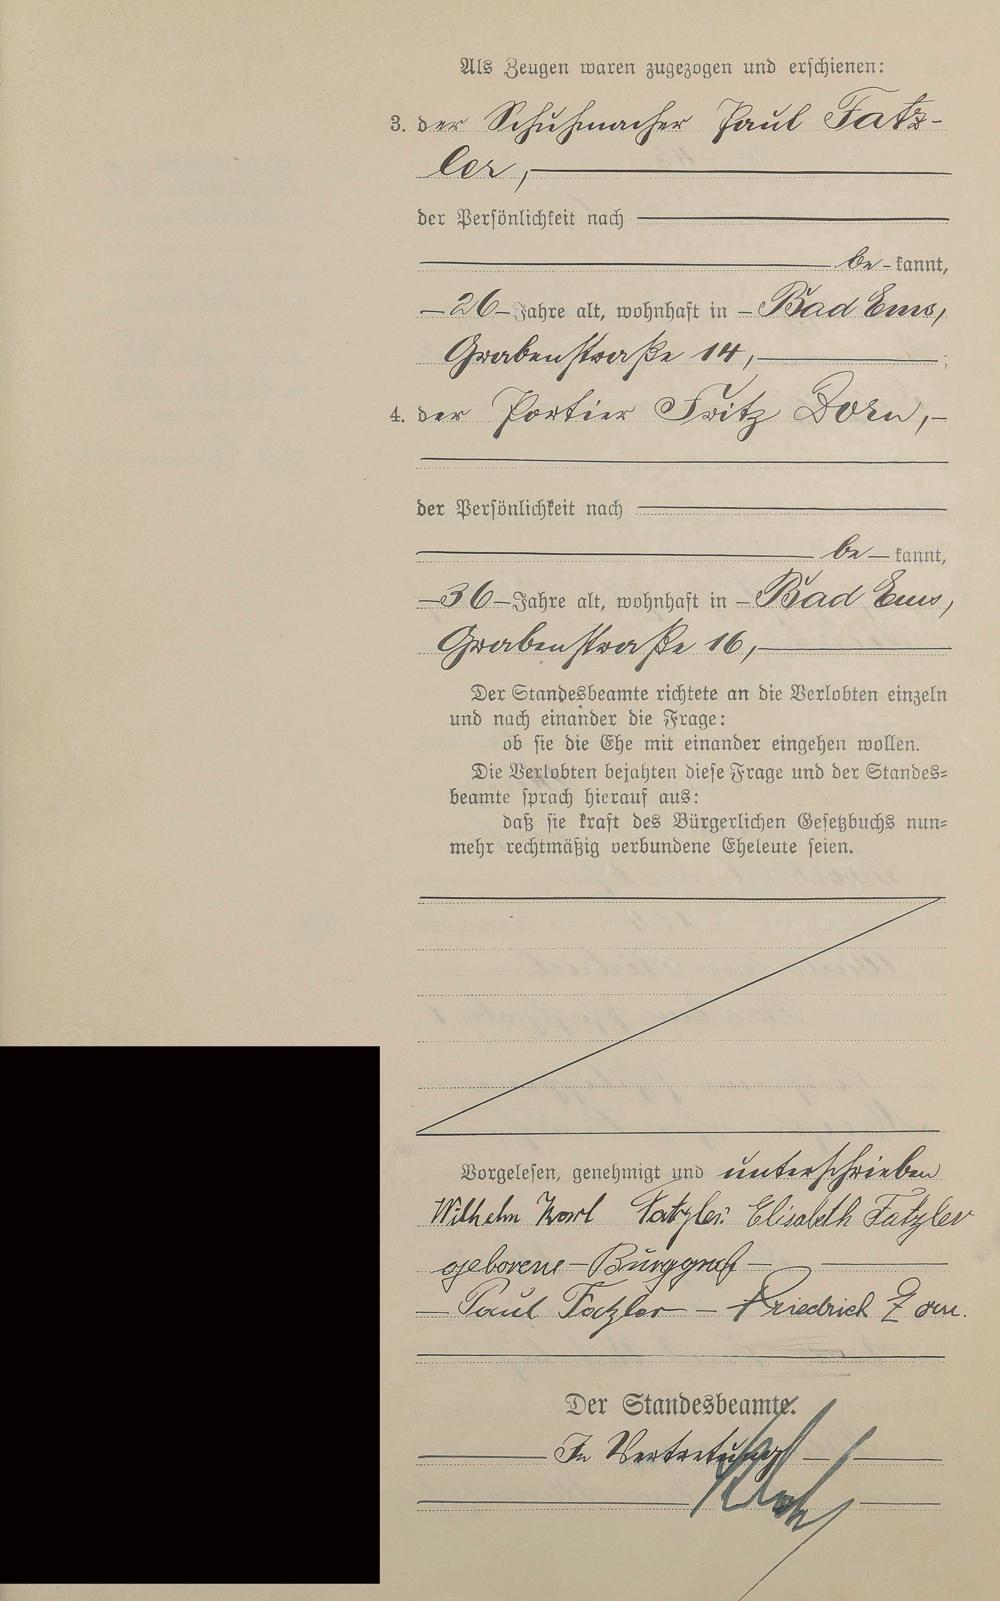 Als Zeugen waren zugezogen und erschienen:
3. der Schuhmacher Paul Fatz-
ler,
der Persönlichkeit nach
be-kannt,
26 Jahre alt, wohnhaft in Bad Ems,
Grabenstraße 14,;
4. der Portier Fritz Dorn,
der Persönlichkeit nach
be-kannt,
36 Jahre alt, wohnhaft in Bad Ems,
Grabenstraße 16,
Der Standesbeamte richtete an die Verlobten einzeln
und nach einander die Frage:
ob sie die Ehe mit einander eingehen wollen.
Die Verlobten bejahten diese Frage und der Standes-
beamte sprach hierauf aus:
daß sie kraft des Bürgerlichen Gesetzbuchs nun-
mehr rechtmäßig verbundene Eheleute seien.
Vorgelesen, genehmigt und unterschrieben
Wilhelm Karl Fatzler. Elisabeth Fatzler
geborene Burggraf
Paul Fatzler Friedrich Dorn.
Der Standesbeamte.
In Vertretung